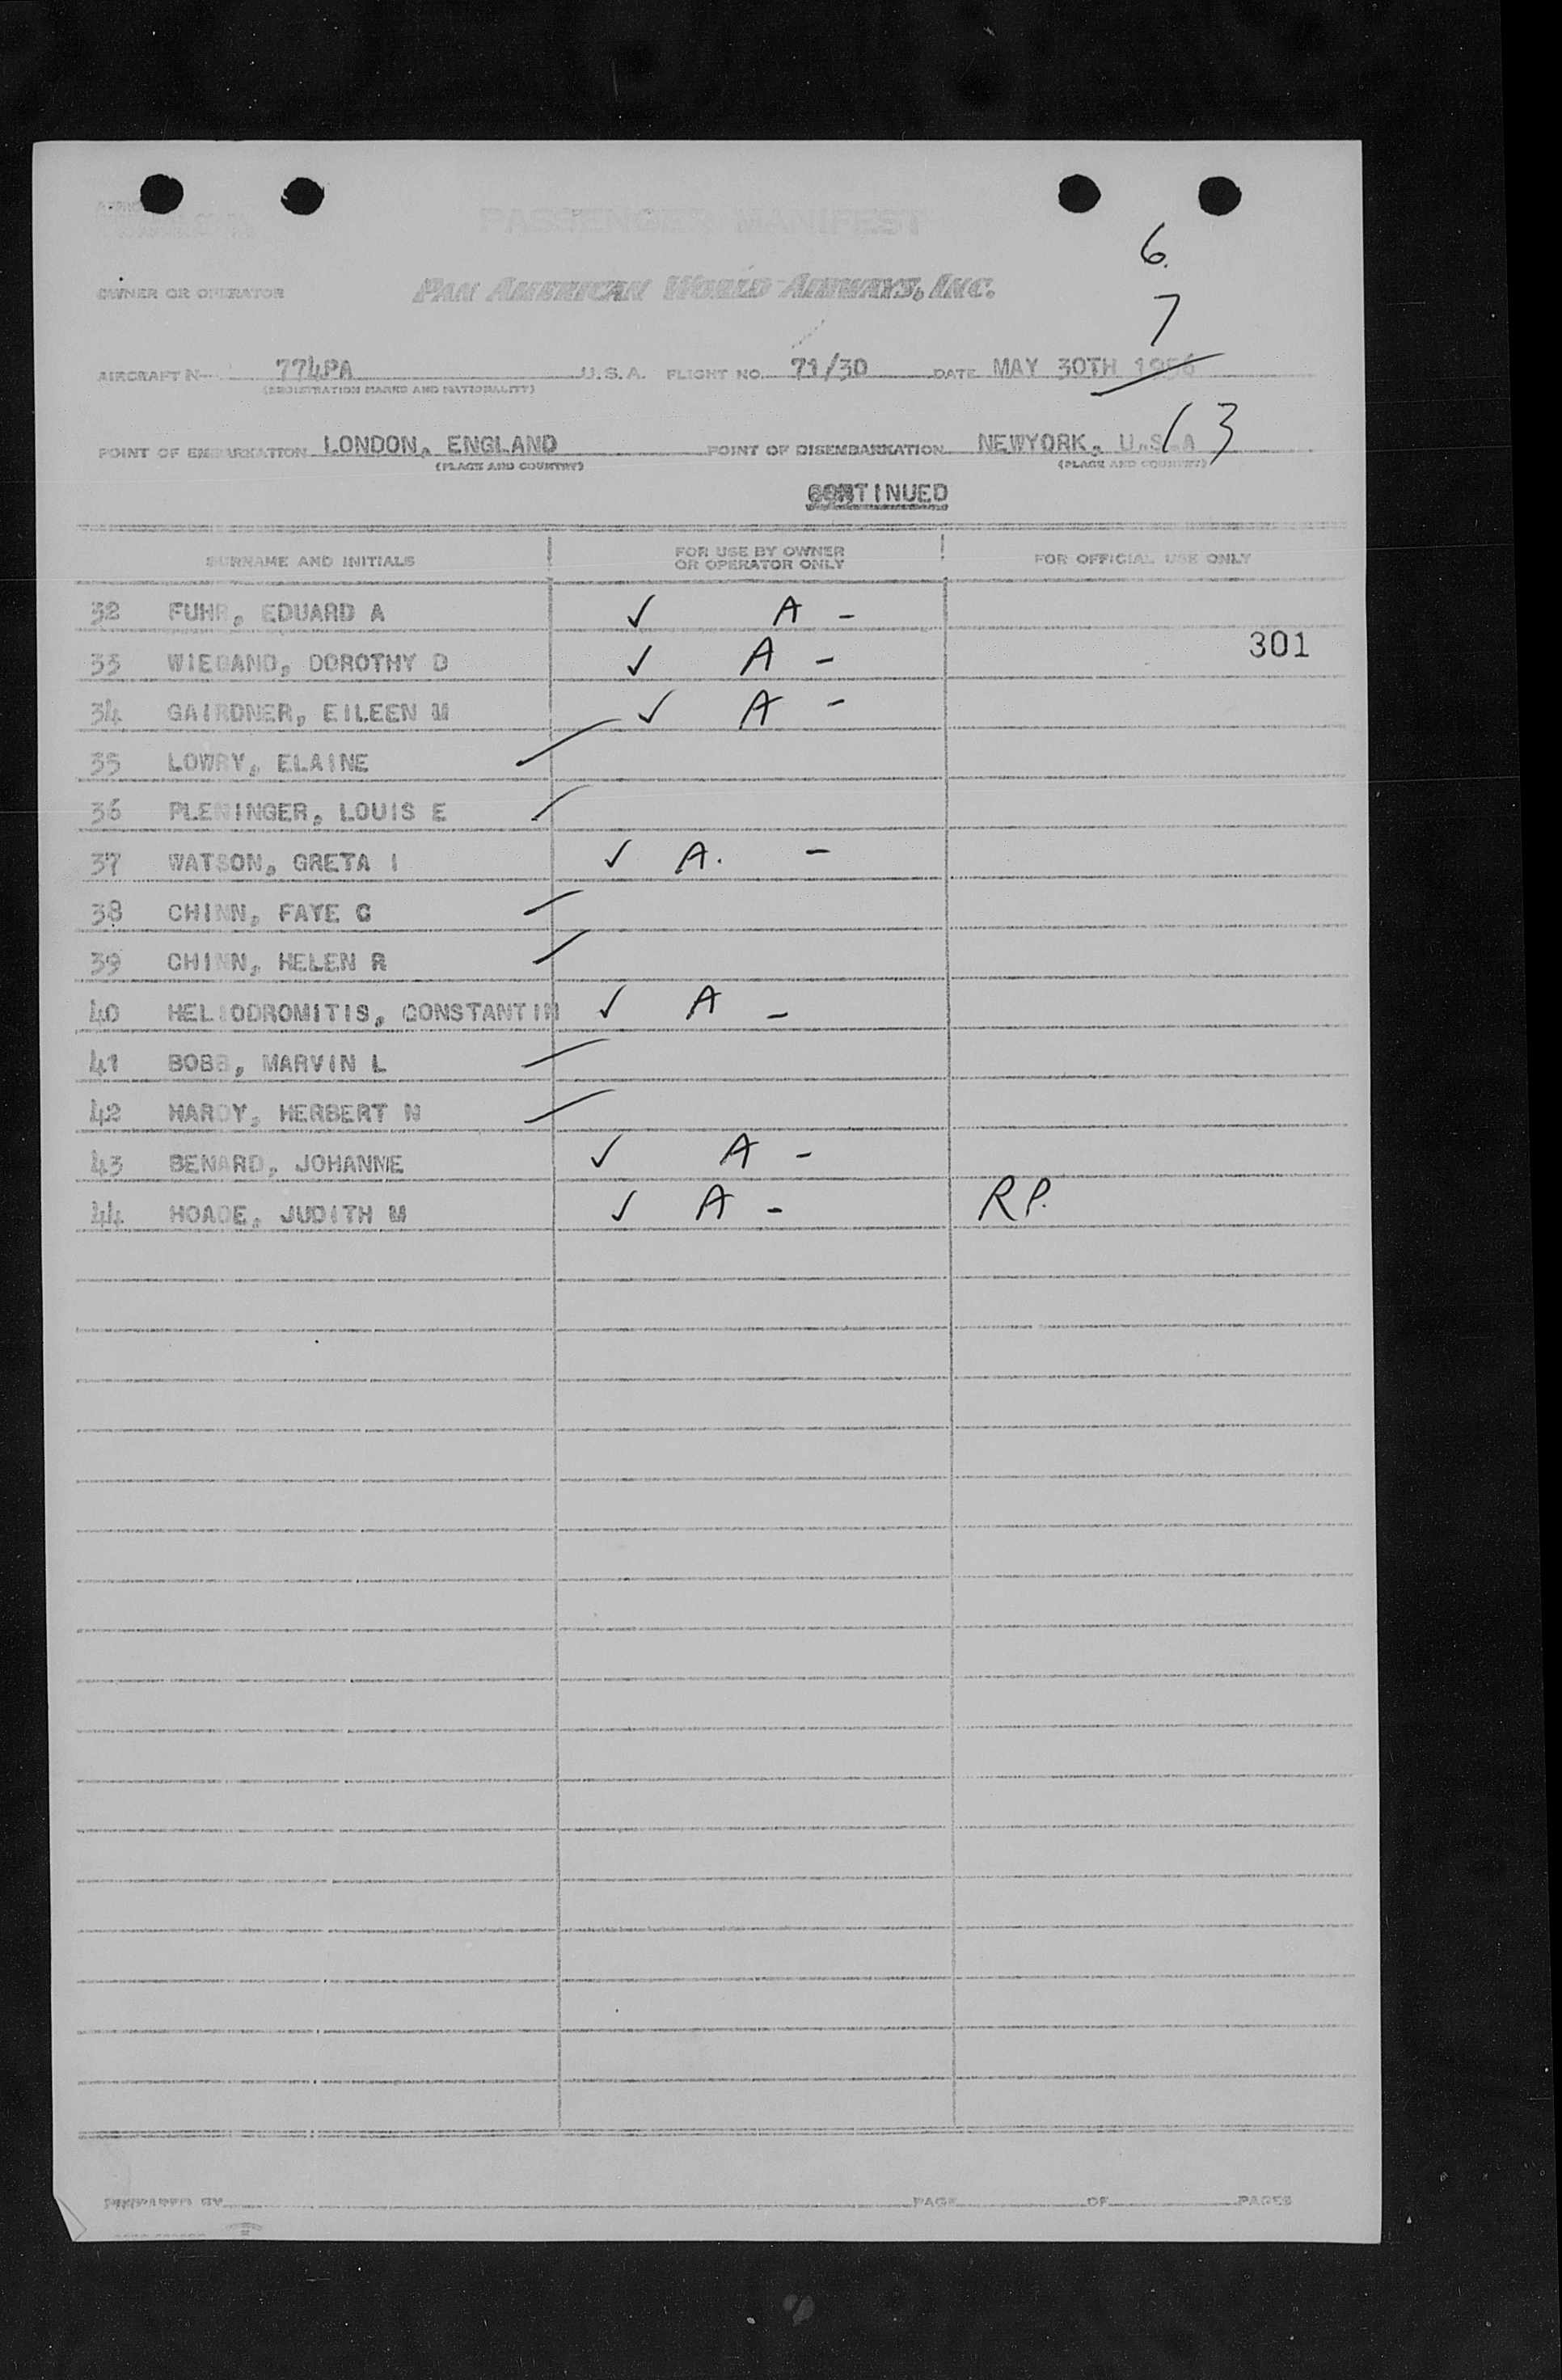 PASSENGER MANIFEST
6.
OWNER OR OPERATOR PAN AMERICAN WORLD AIRWAYS, INC.
7
AIRCRAFT N 774PA U.S.A. FLIGHT NO. 71/30 DATE MAY 30TH 1956
(REGISTRATION MARKS AND NATIONALITY)
13
POINT OF EMBARKATION LONDON, ENGLAND POINT OF DISEMBARKATION NEWYORK, U.S.A
(PLACE AND COUNTRY) (PLACE AND COUNTRY)
CONTINUED
SURNAME AND INITIALS FOR USE BY OWNER OR OPERATOR ONLY FOR OFFICIAL USE ONLY
32 FUHR, EDUARD A ✓ A -
301
33 WIEGAND, DOROTHY D ✓ A -
34 GAIRDNER, EILEEN M ✓ A -
35 LOWRY, ELAINE /
36 PLENINGER, LOUIS E /
37 WATSON, GRETA I ✓ A. -
38 CHINN, FAYE G /
39 CHINN, HELEN R /
40 HELIODROMITIS, CONSTANTIN ✓ A -
41 BOBB, MARVIN L /
42 HARDY, HERBERT N /
43 BENARD, JOHANNE ✓ A -
44 HOADE, JUDITH M ✓ A - R P.
PREPARED BY PAGE OF PAGES